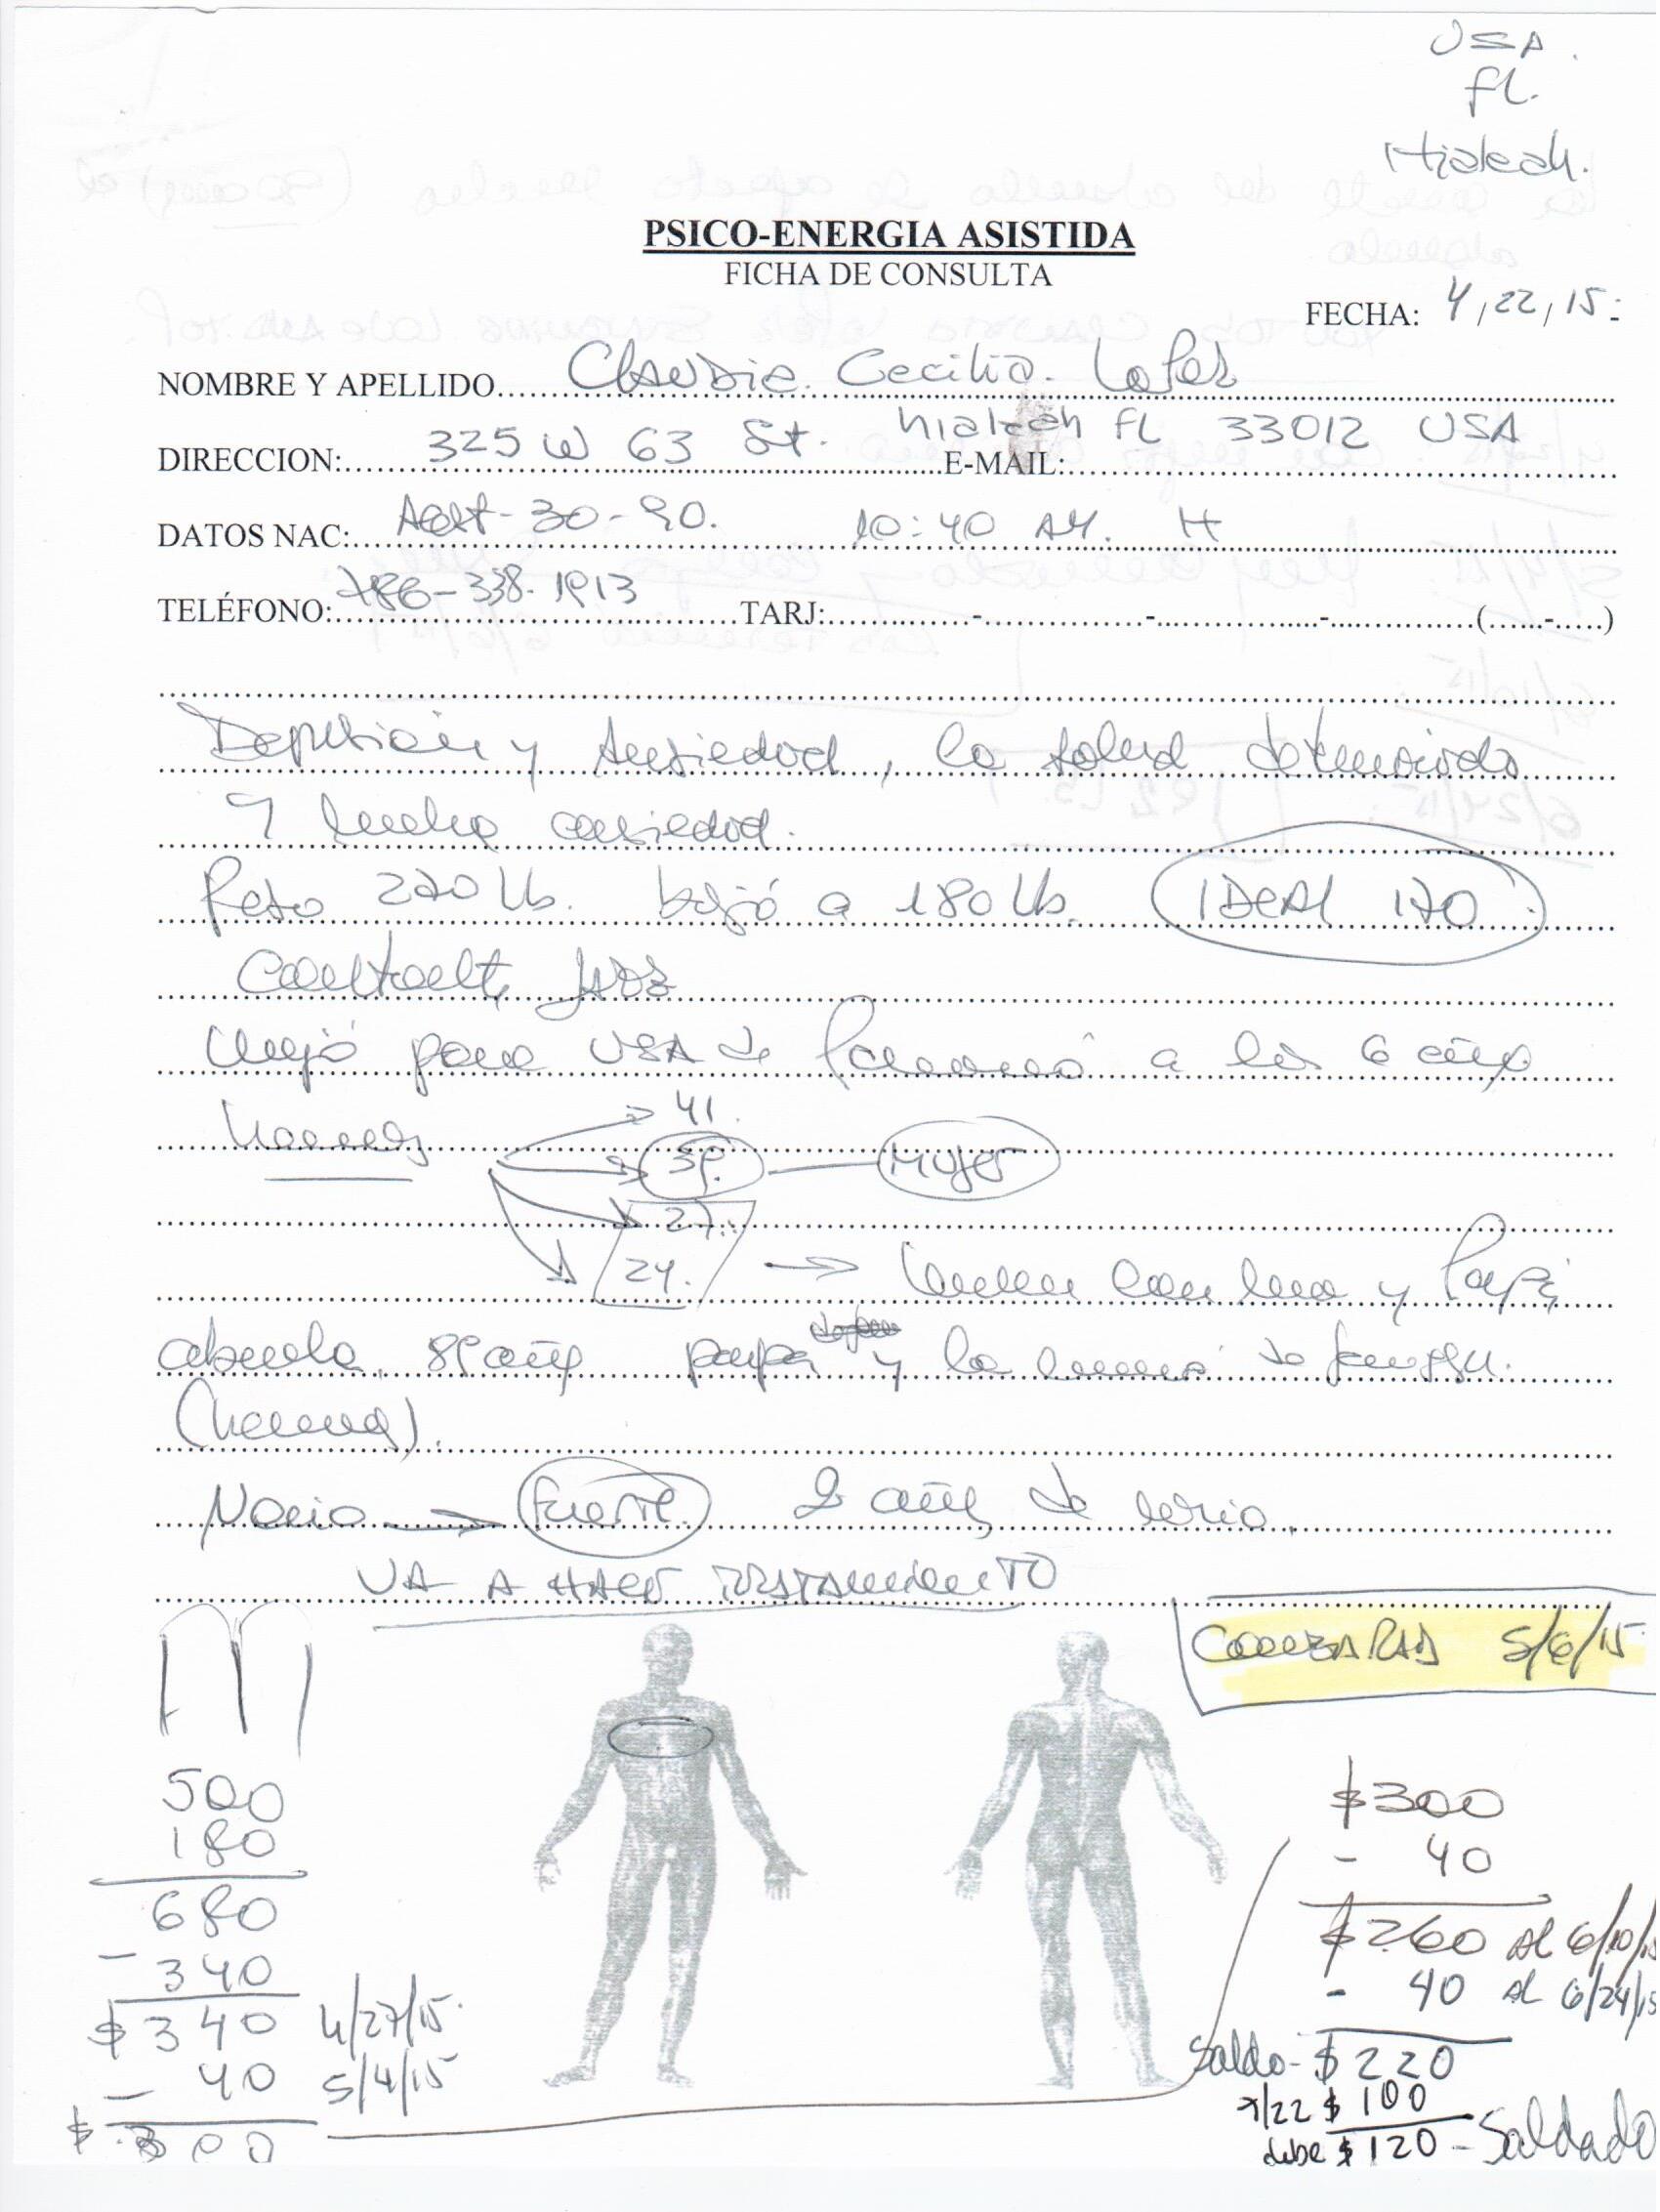 USA.
FL.
Hialeah.
PSICO-ENERGIA ASISTIDA
FICHA DE CONSULTA
FECHA: 4/22/15
NOMBRE Y APELLIDO Claudia Cecilia Lopez
DIRECCION: 325 W 63 St. hialeah FL 33012 USA E-MAIL:
DATOS NAC: Agst-30-90. 10:40 AM. H
TELÉFONO: 786-338-1913 TARJ: - - - ( - )
Depresion y Ansiedad, la salud
y mucha ansiedad.
Peso 270 Lb. bajó a 180 Lb. IDEAL 170.
Cantante Jazz
Viajó para USA de Panamá a los 6 años
41.
39. Mujer
27.
24. → viven con ma y Papi
abuela. 89 años papá y la mamá de
Novio → Fuerte. 2 años de novio.
VA A HACER TRATAMIENTO
5/6/15
500
180
680
- 340
$ 340 4/27/15
- 40 5/4/15
$ 300
$300
- 40
$260 al 6/10/15
- 40 al 6/24/15
Saldo - $220
7/22 $ 100
debe $ 120 - Saldado